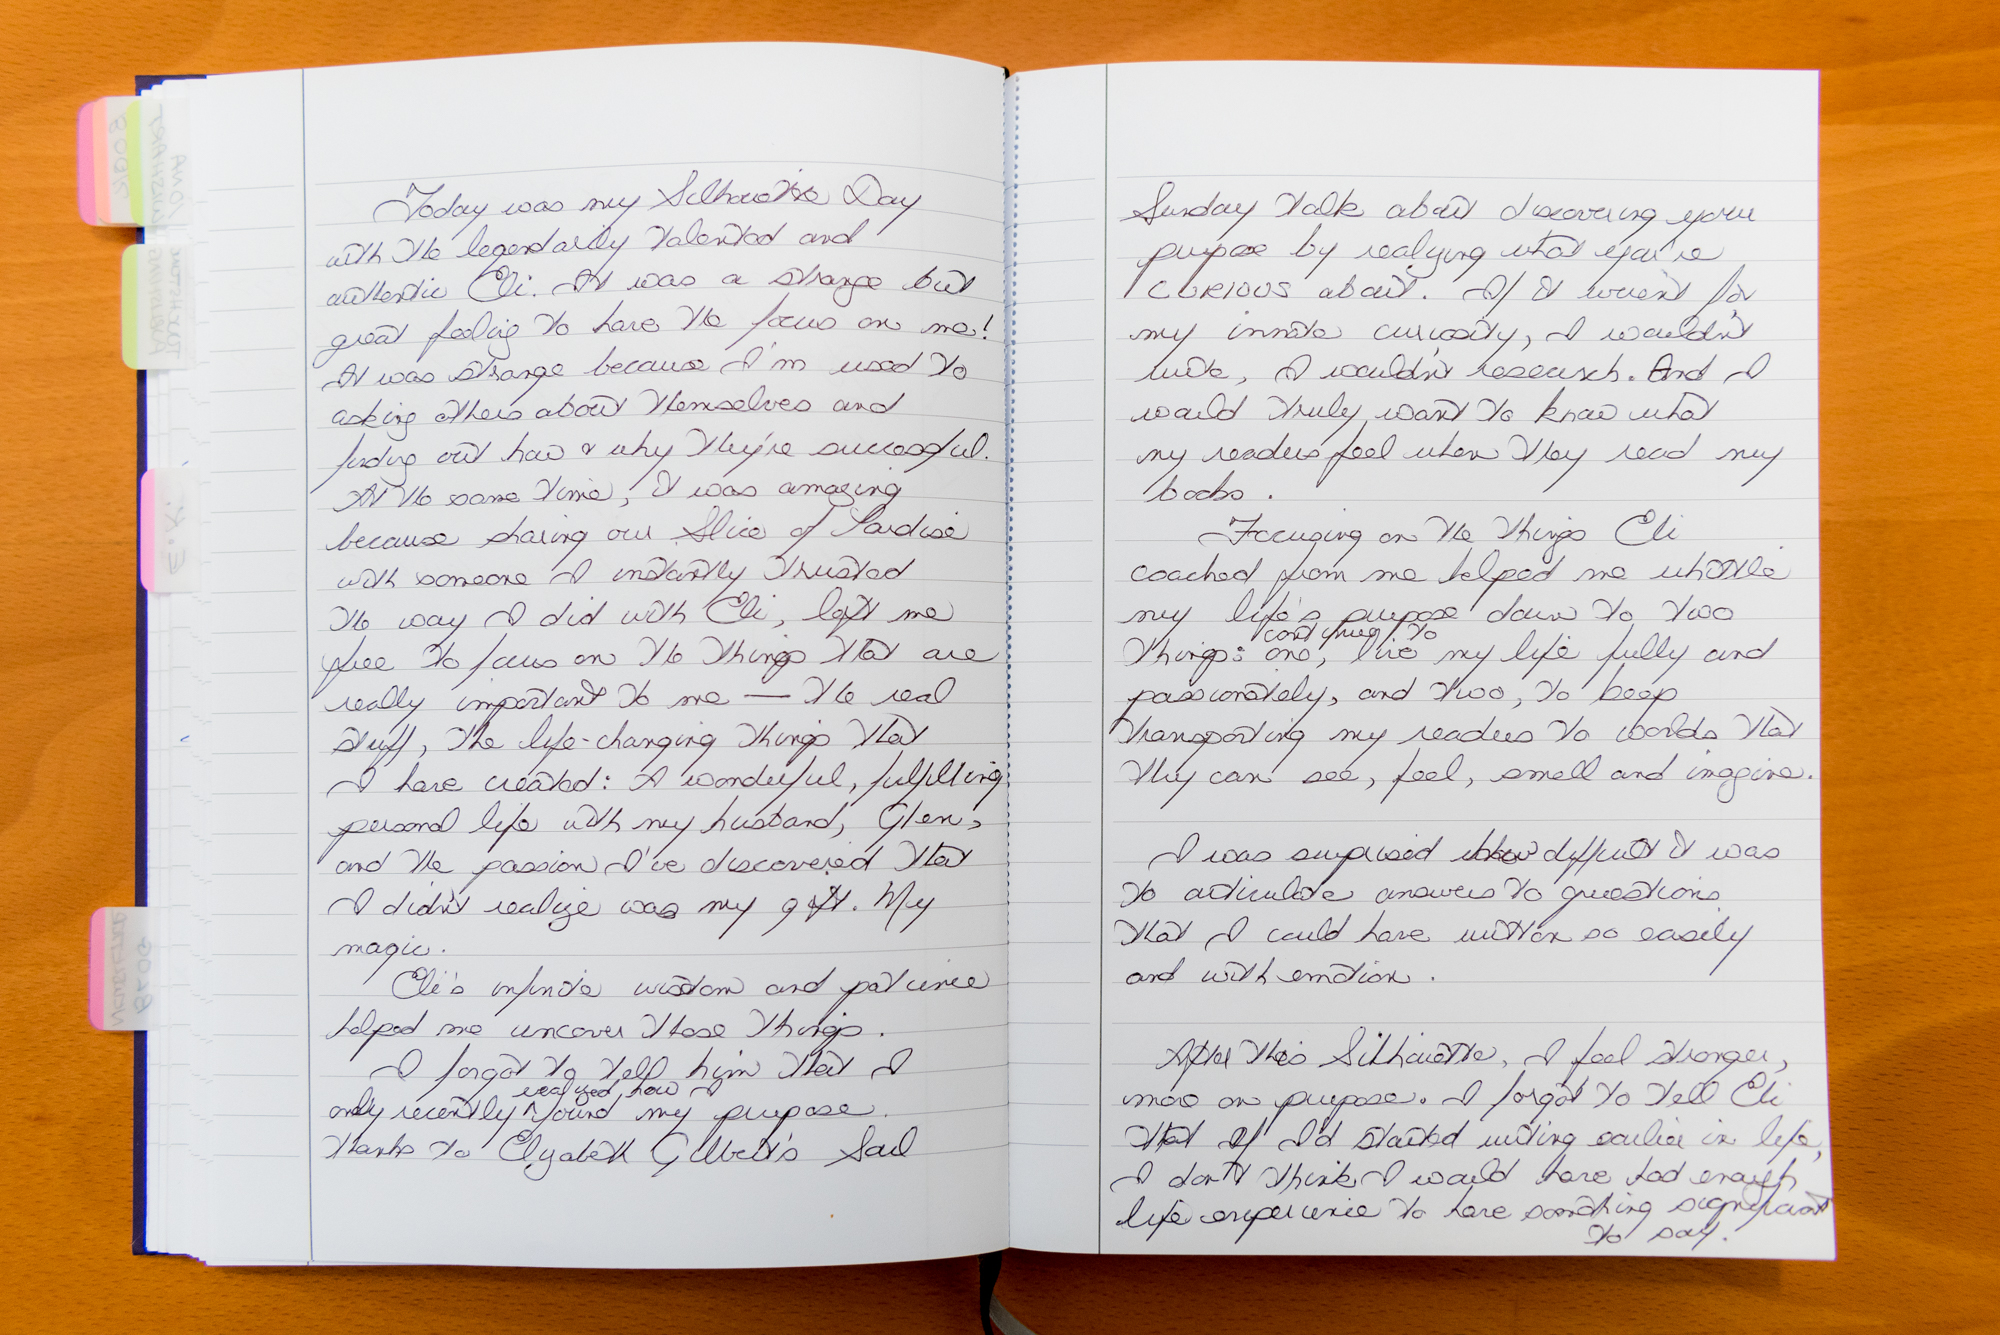 Today was my Silhouette Day
with the legendarily talented and
authentic Eli. It was a strange but
great feeling to have the focus on me!
It was strange because I'm used to
asking others about themselves and
finding out how & why they're successful.
At the same time, it was amazing
because sharing our Slice of Paradise
with someone I instantly trusted
the way I did with Eli, left me
free to focus on the things that are
really important to me — the real
stuff, the life-changing things that
I have created: A wonderful, fulfilling
personal life with my husband, Glen,
and the passion I've discovered that
I didn't realize was my gift. My
magic.
Eli's infinite wisdom and patience
helped me uncover those things.
I forgot to tell him that I
realized how I
only recently ^ found my purpose.
thanks to Elizabeth Gilbert's Soul
Sunday talk about discovering your
purpose by realizing what you're
CURIOUS about. If it weren't for
my innate curiosity, I wouldn't
write, I wouldn't research. And I
would truly want to know what
my readers feel when they read my
books.
Focusing on the things Eli
coached from me helped me whittle
my life's purpose down to two
continue to
things: one, live my life fully and
passionately, and two, to keep
transporting my readers to worlds that
they can see, feel, smell and imagine.
I was surprised how difficult it was
to articulate answers to questions
that I could have written so easily
and with emotion.
After this Silhouette, I feel stronger,
more on purpose. I forgot to tell Eli
that if I'd started writing earlier in life,
I don't think I would have had enough
life experience to have something significant
to say.
2008
E.K.
BLOG